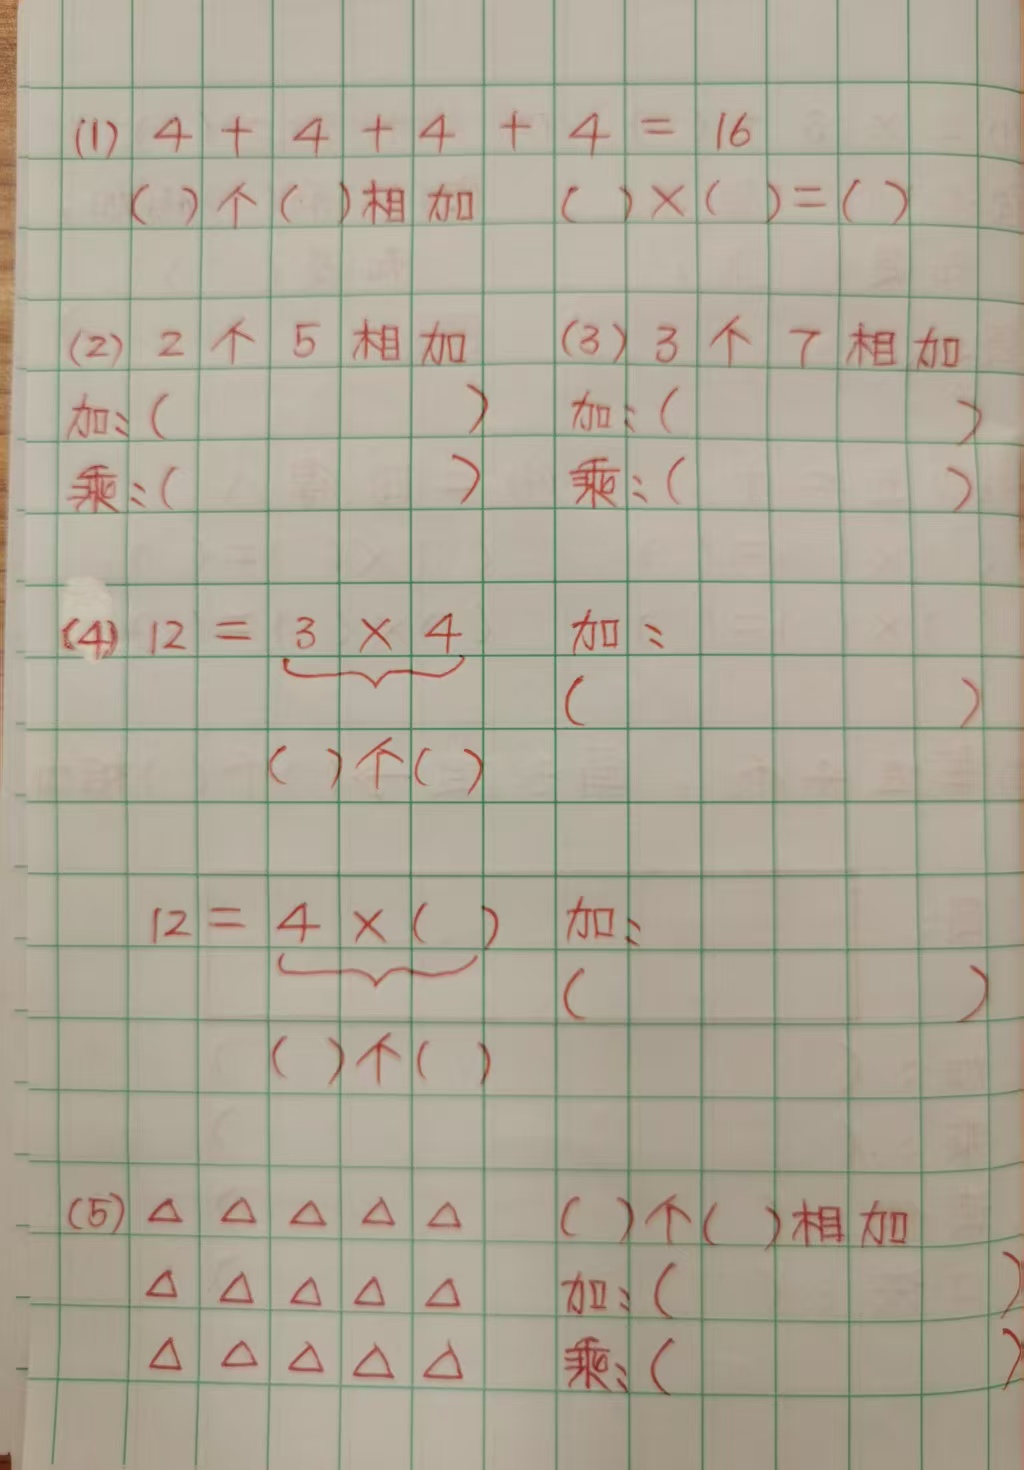 (1) 4 + 4 + 4 + 4 = 16
( )个( )相加 ( )×( )=( )
(2) 2个5相加 (3) 3个7相加
加:( ) 加:( )
乘:( ) 乘:( )
(4) 12 = 3 × 4 加:
( )
( )个( )
12 = 4 ×( ) 加:
( )
( )个( )
(5) △ △ △ △ △ ( )个( )相加
△ △ △ △ △ 加:( )
△ △ △ △ △ 乘:( )